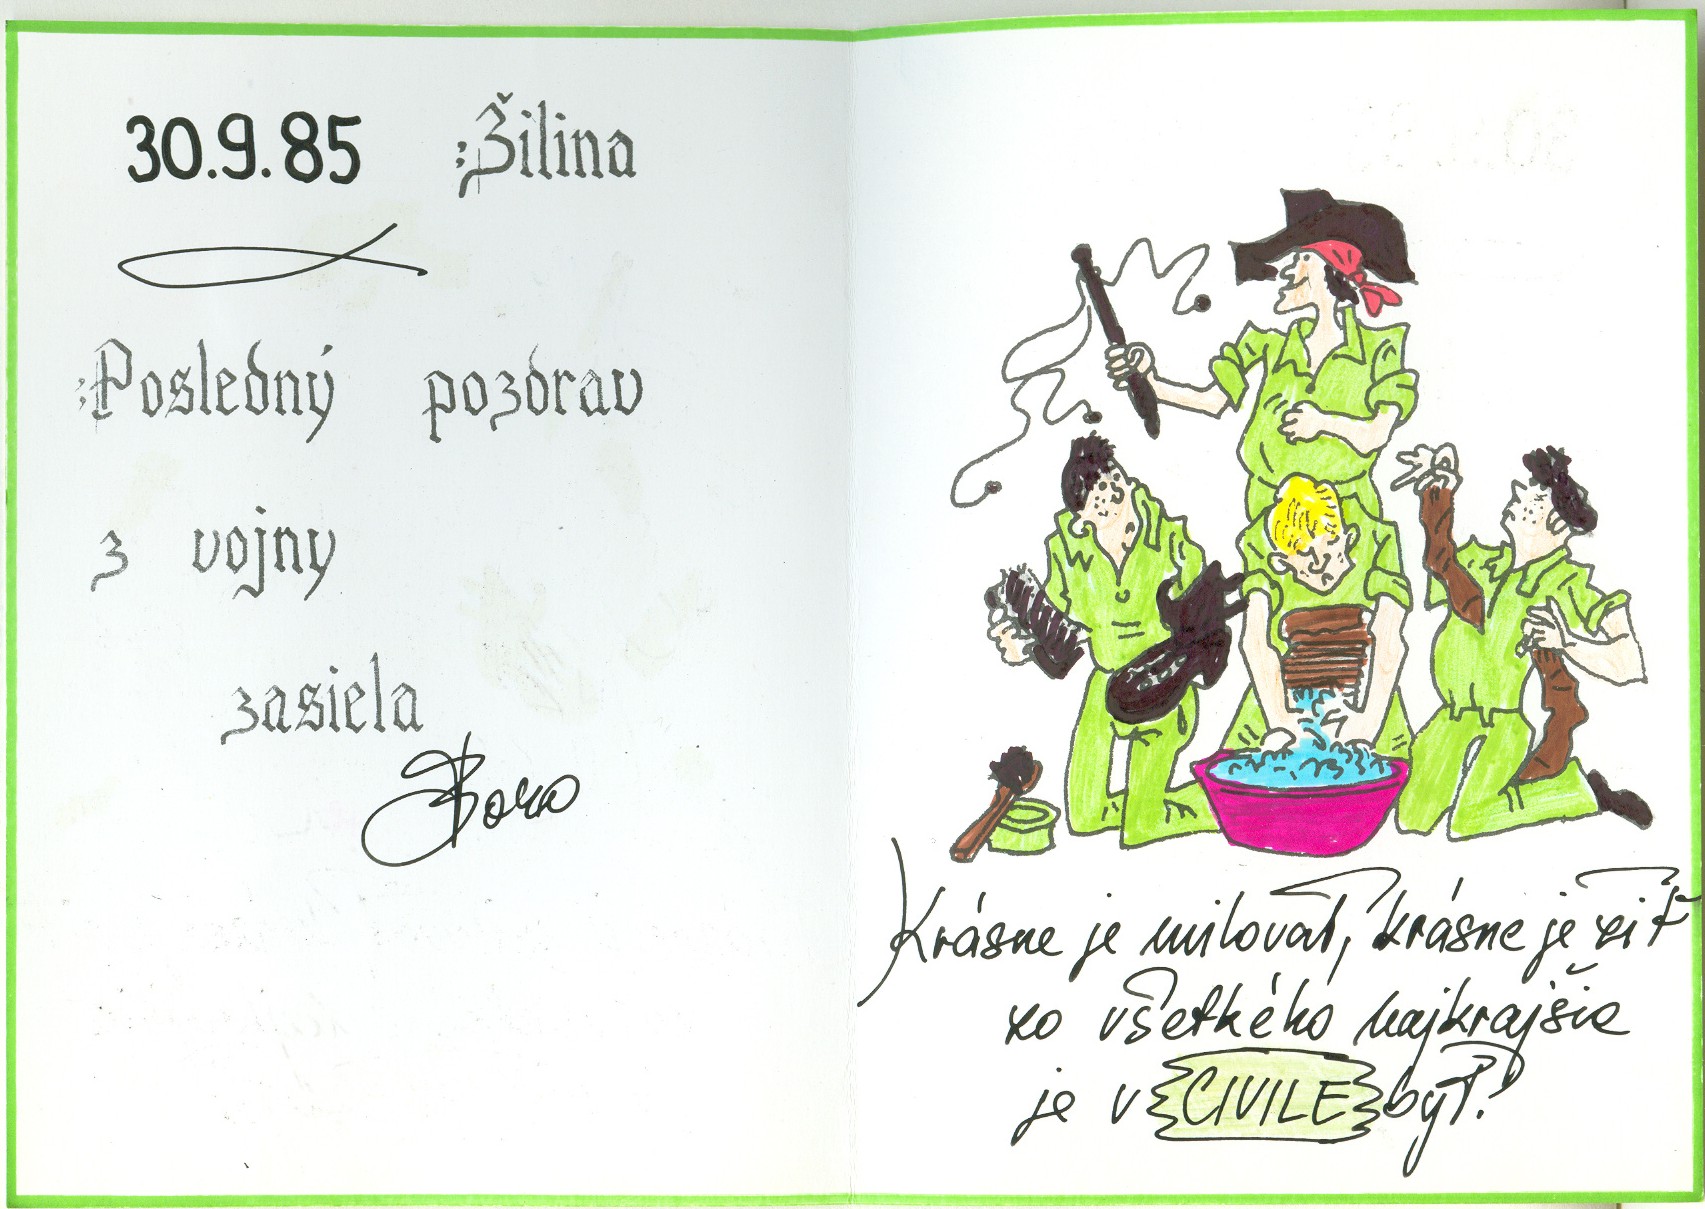 30.9.85 Žilina
Posledný pozdrav
z vojny
zasiela
Boro
Krásne je milovať, krásne je žiť
zo všetkého najkrajšie
je v CIVILE byť!